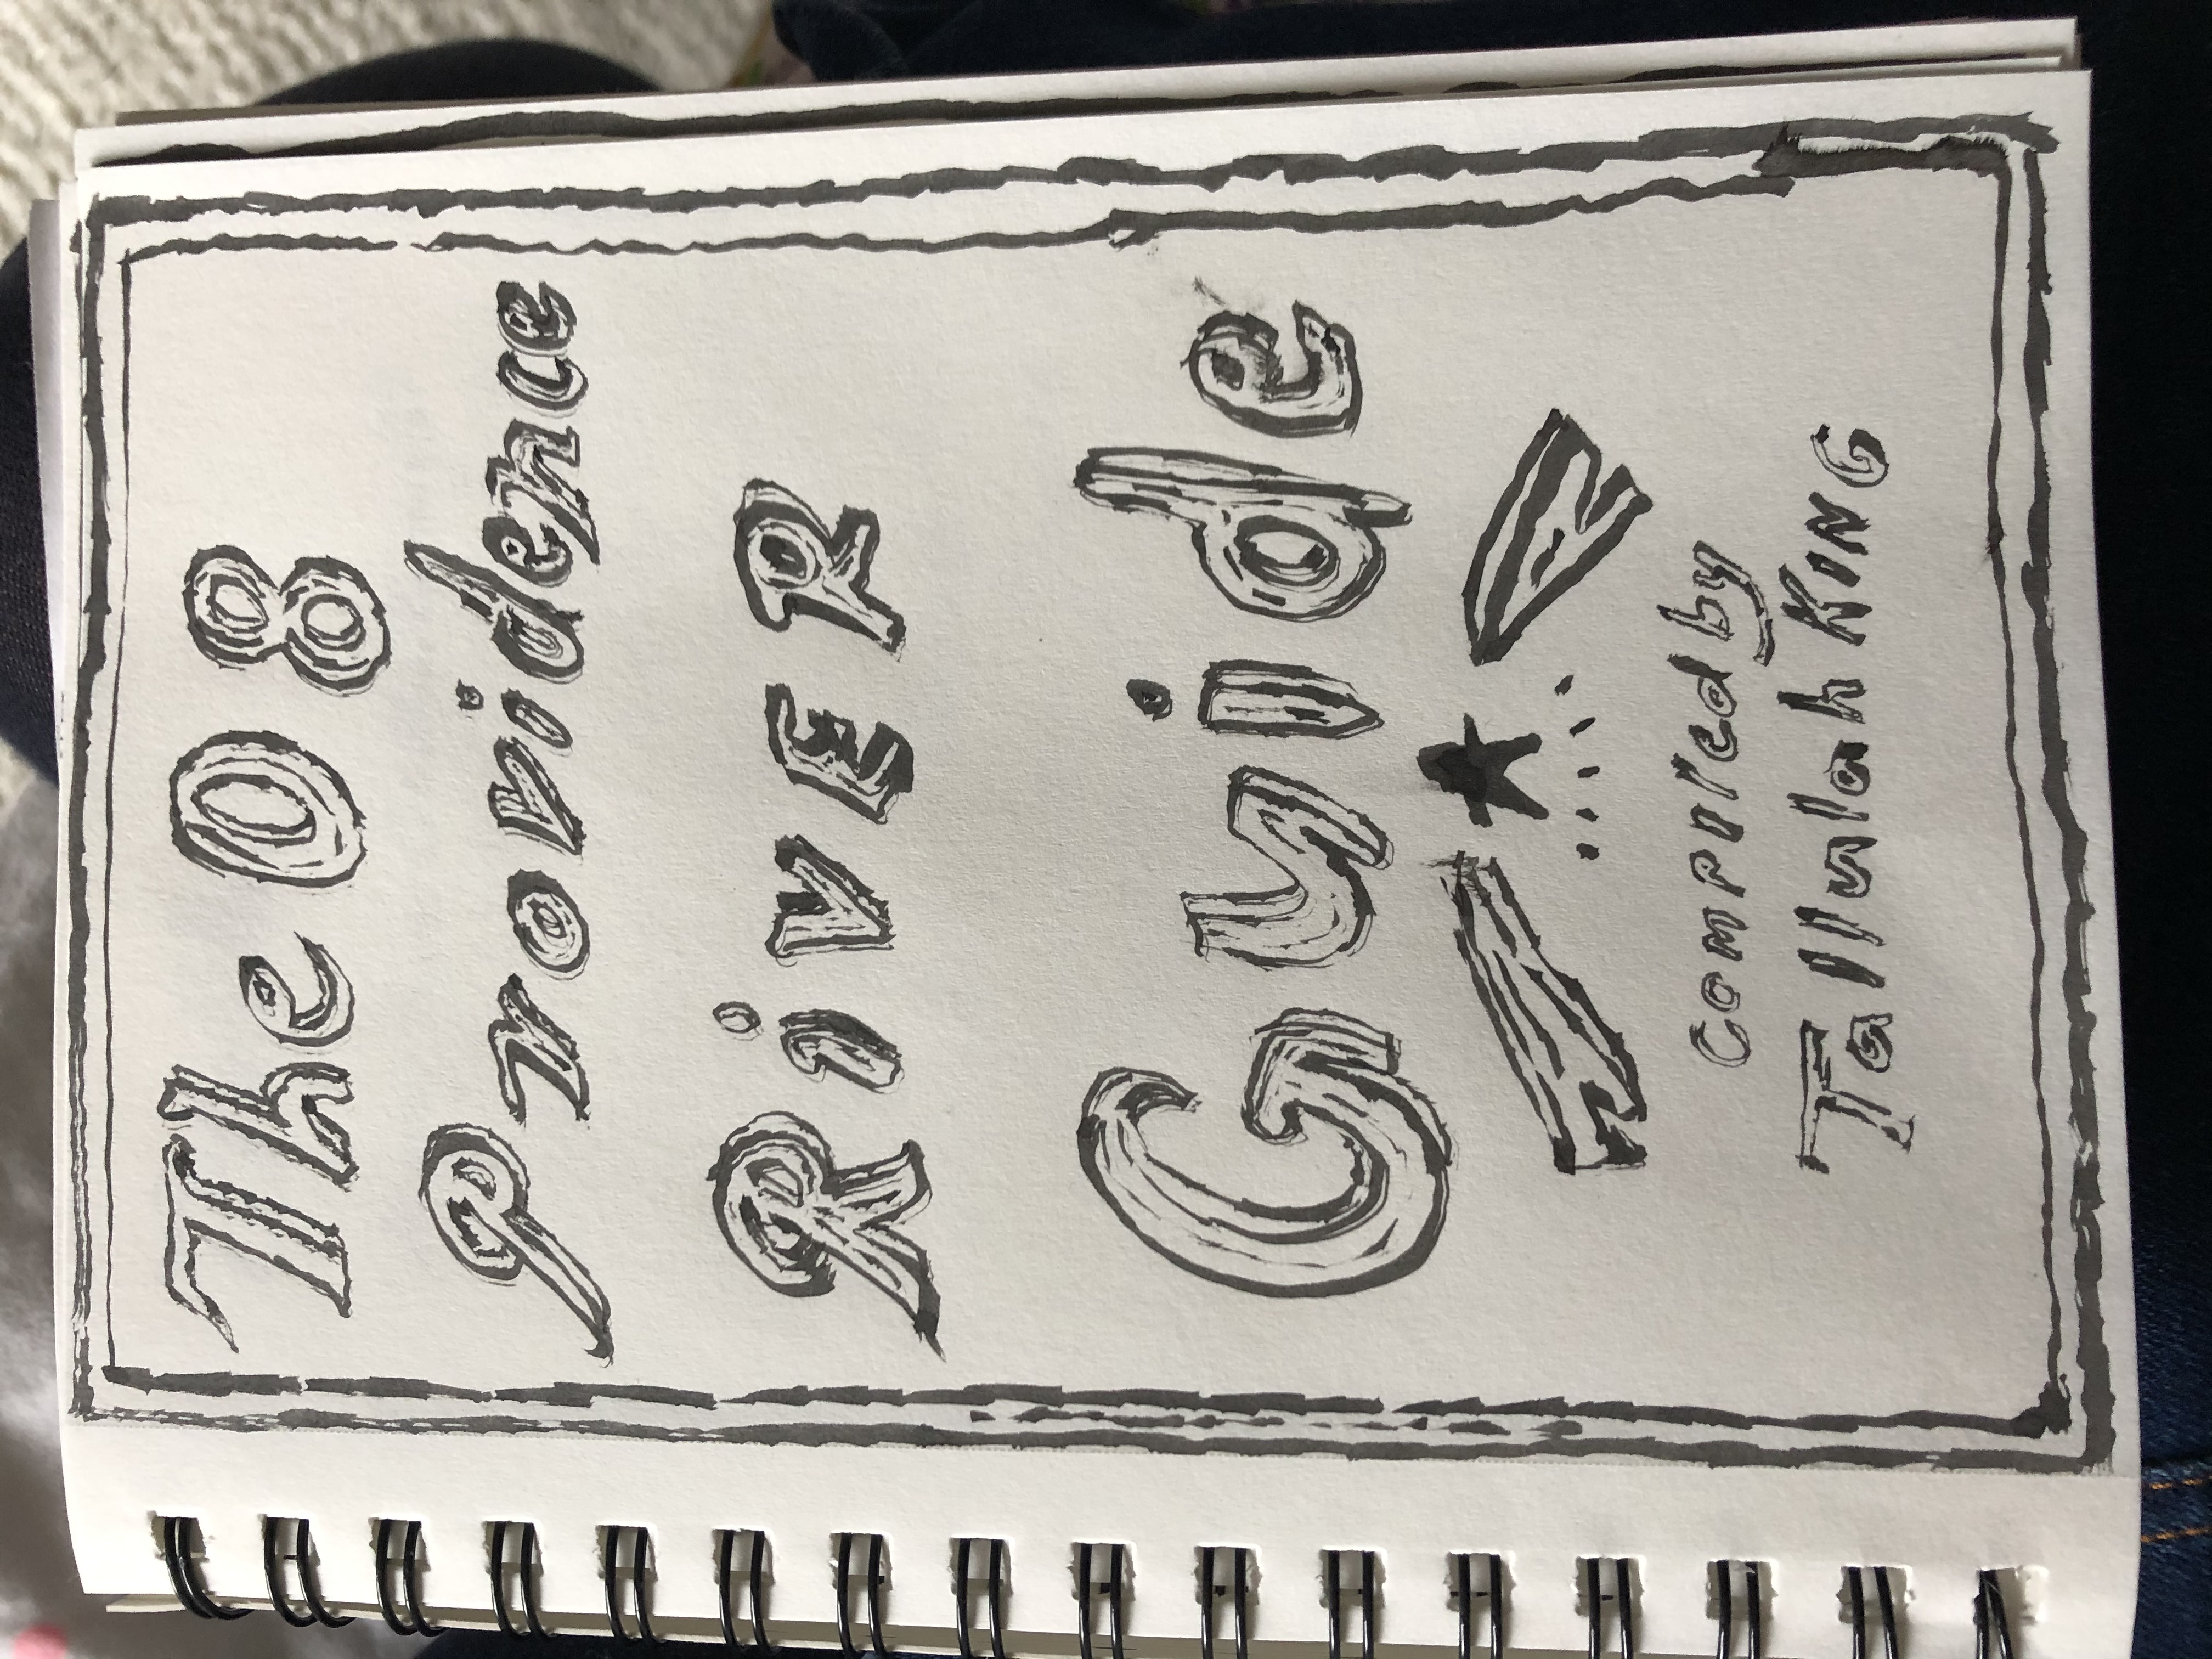 The 08
Providence
RivER
Guide
Compiled by
Tallulah KING